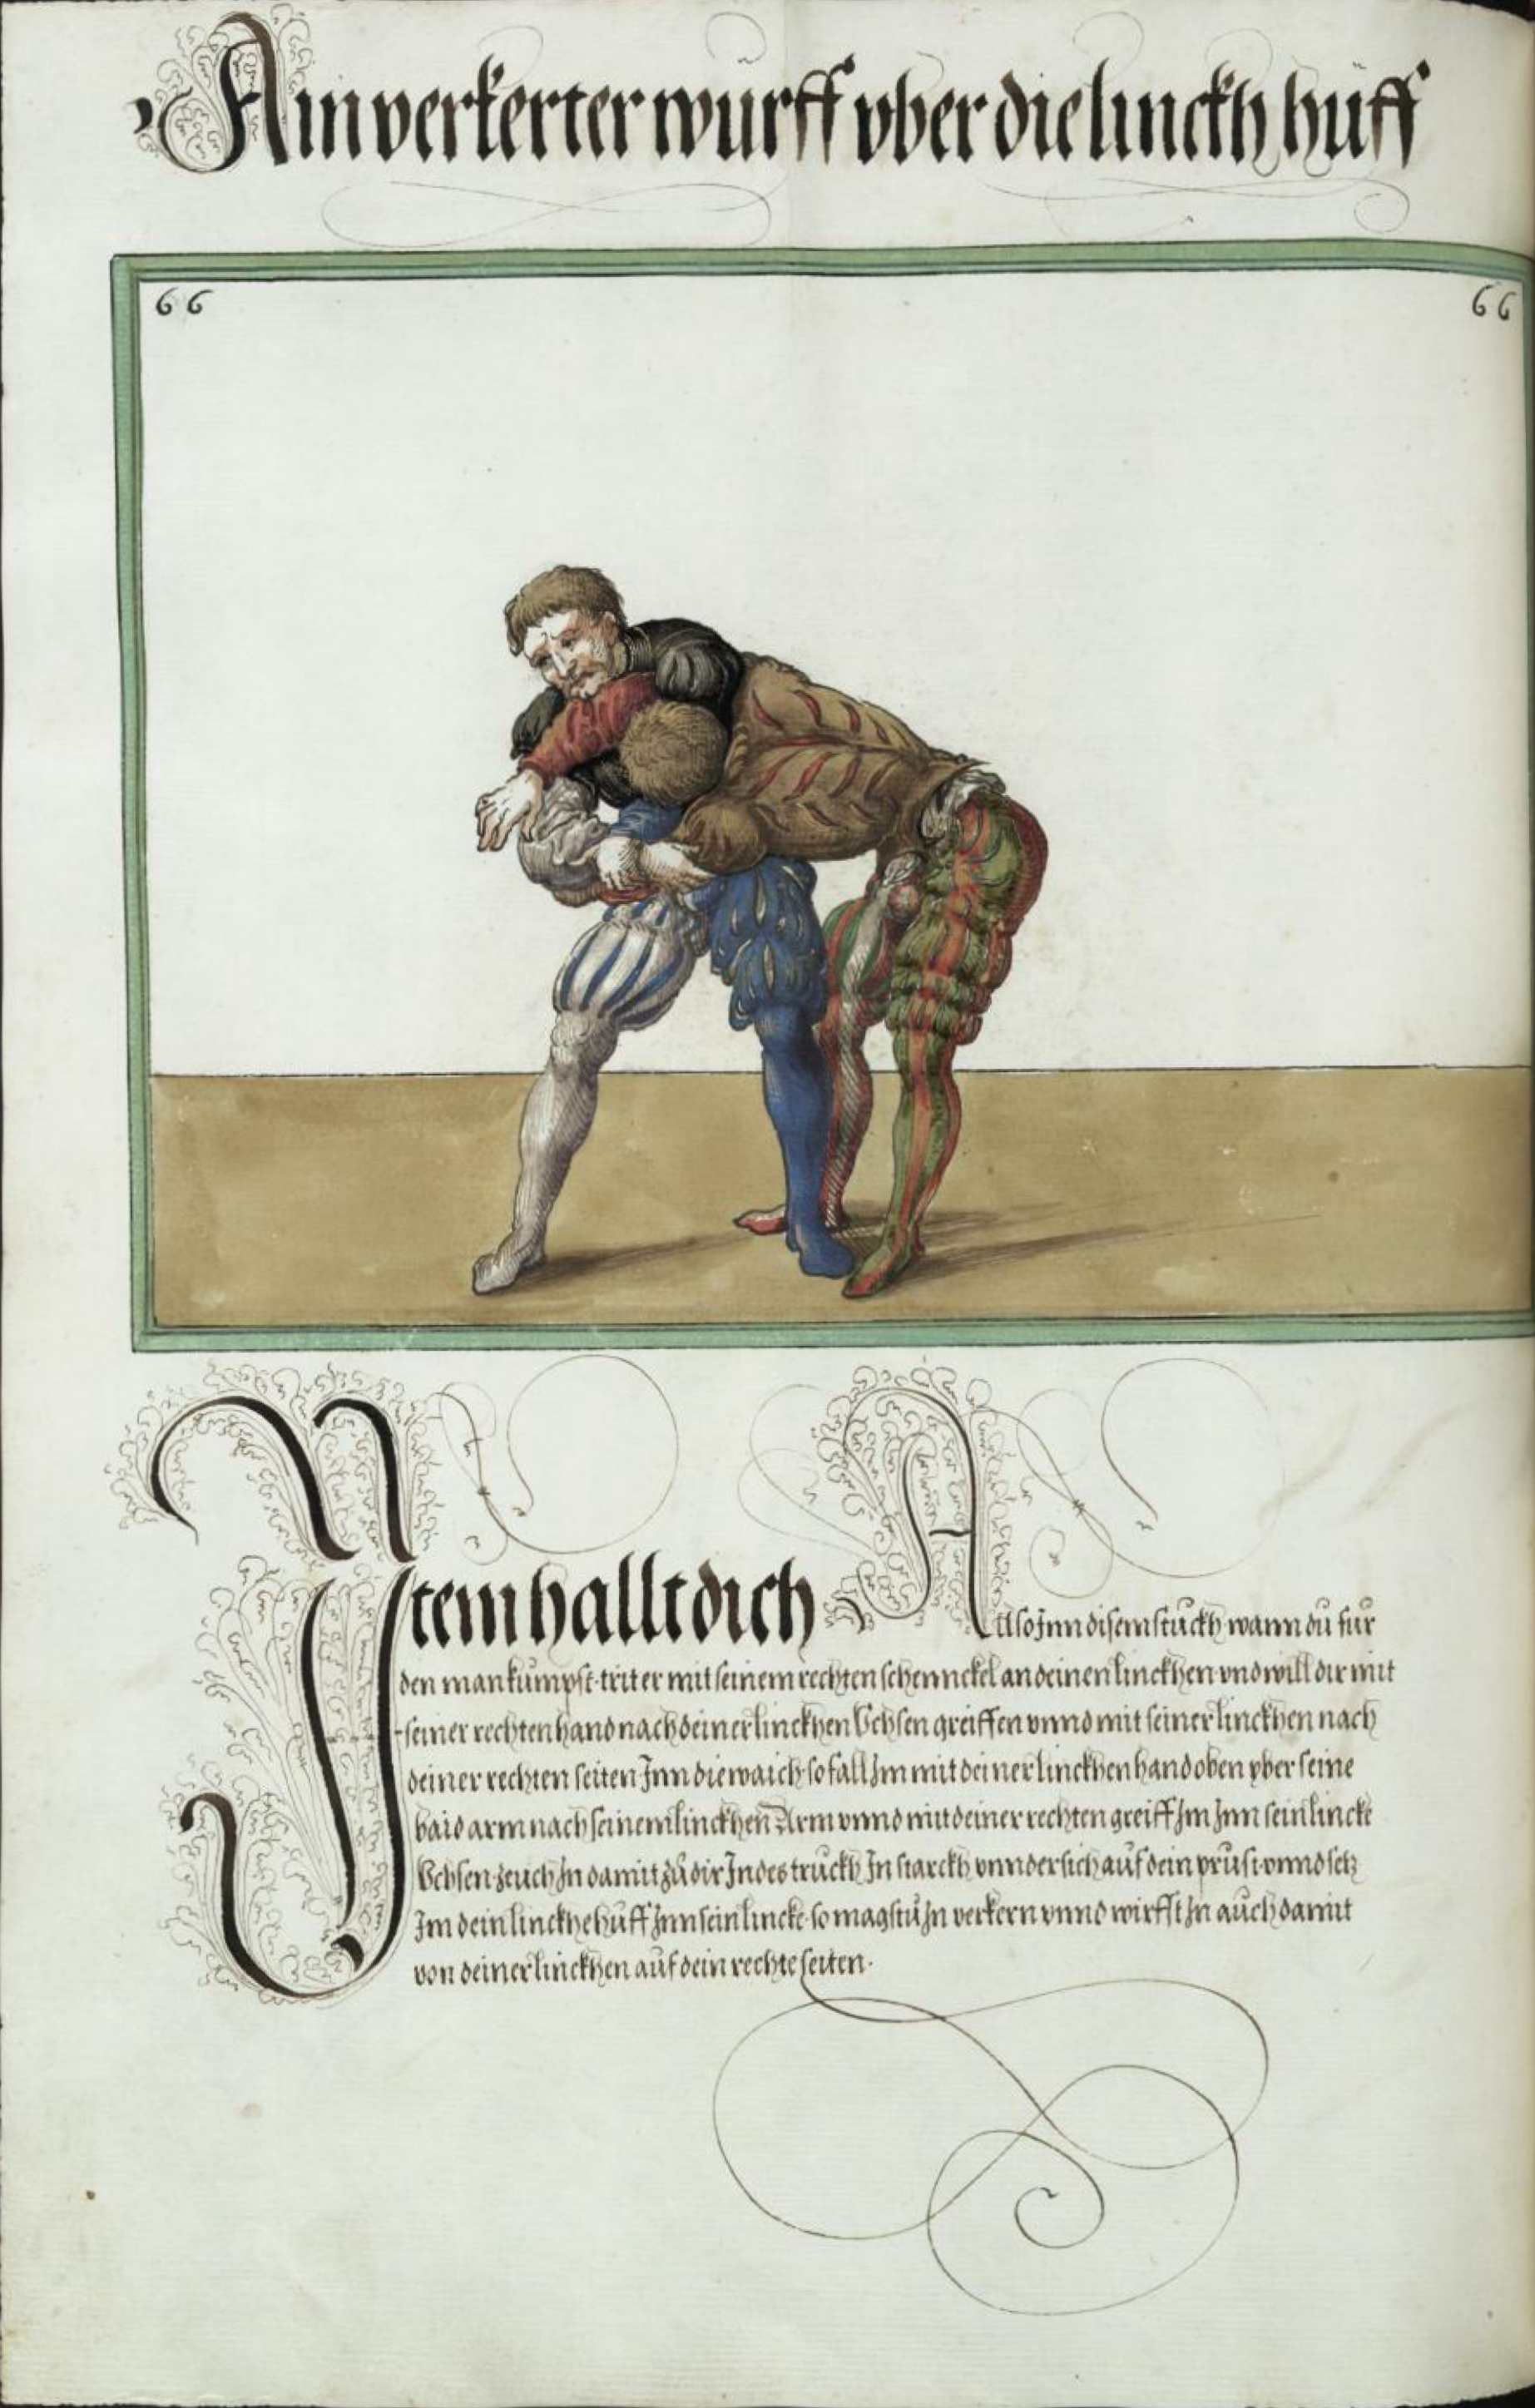 Ain verkerter wurff vber die linckh hüff
66 66
Item hallt dich
Also Jnn disem stuckh wann du fur
den man kumpst. trit er mit seinem rechten schennckel an deinen linckhen vnd will dir mit
seiner rechten hand nach deiner linckhen Vchsen greiffen vnnd mit seiner linckhen nach
deiner rechten seiten Jnn die waich so fall Jm mit deiner linckhen hand oben vber seine
baid arm nach seinem linckhen Arm vnnd mit deiner rechten greiff Jm Jnn sein linckt
Vchsen zeuch Jn damit zu dir Jndes truckh Jn starckh vnndersich auf dein prust vnnd setz
Jm dein linckhe huff Jnn sein lincke. so magstu Jn verkern vnnd wirffst Jn auch damit
von deiner linckhen auf dein rechte seiten.